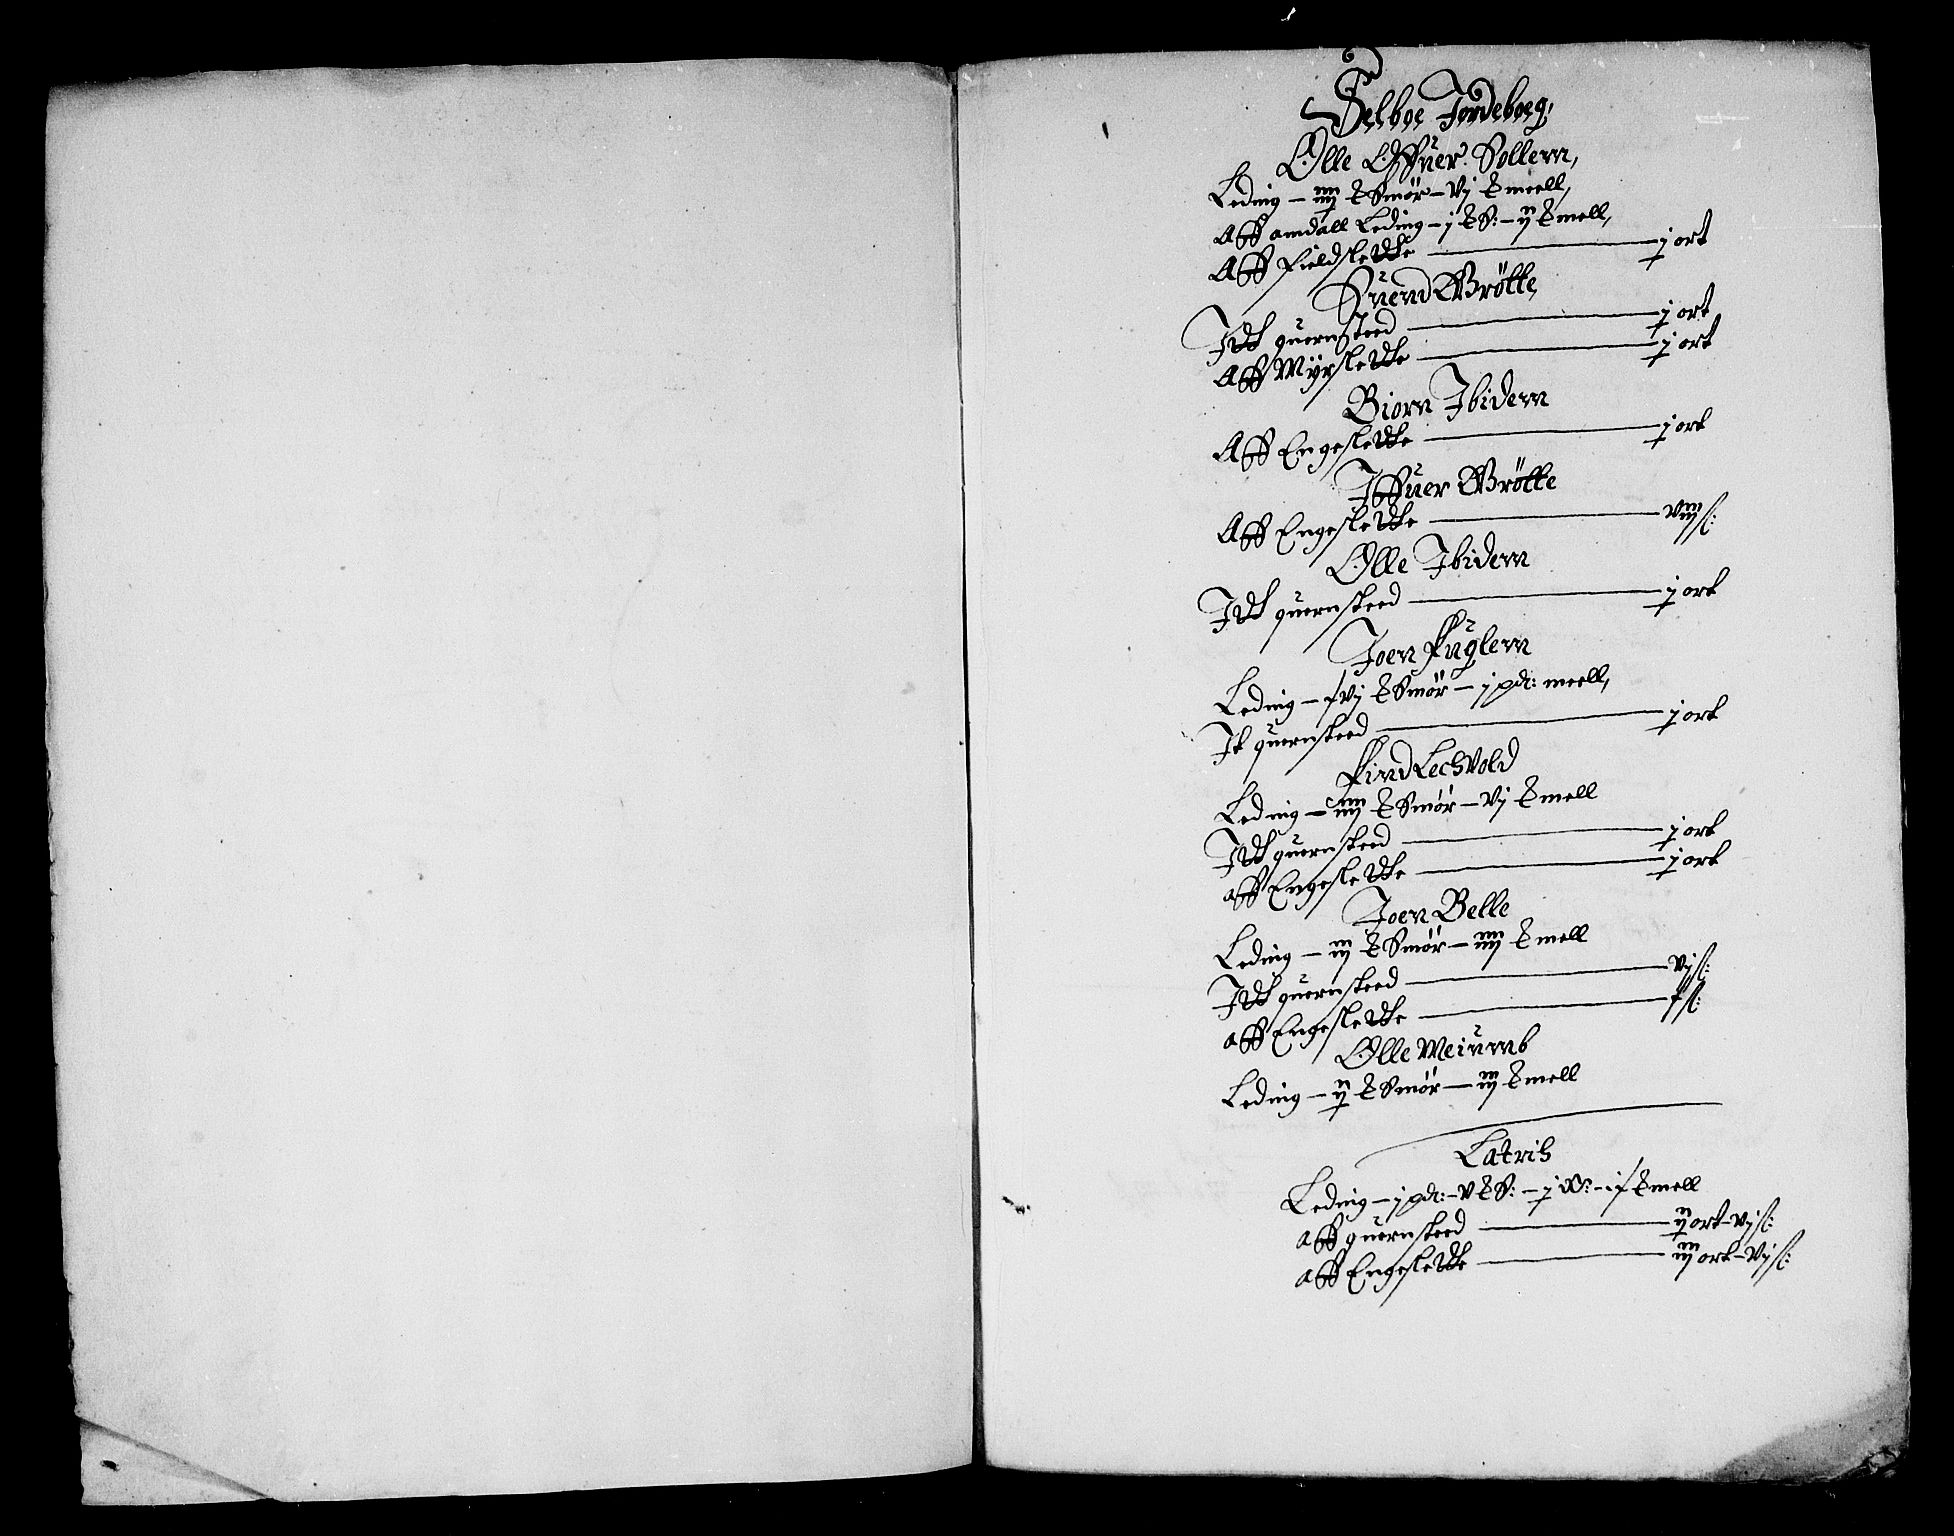 Selboe Jordebog,
Olle Offuer Sellem,
Leding - iiij ℔ Smør - vj ℔ meell,
Aff amdall Leding - j ℔ S: - ij ℔ mell,
Aff Fieldslette - j ort
Suend Grøtte,
Idt quernsted - j ort
Aff Myrslette - j ort
Biorn Ibidem
Aff Engeslette - j ort
Iffuer Grøtte
Aff Engeslette - viij s:
Olle Ibidem
Idt quernsteed - j ort
Joen Fuglem
Leding - vj ℔ Smør - j pdr: meell,
It quernsteed - j ort
Find Lechvold
Leding - iiij ℔ Smør - vj ℔ mell
Idt quernsteed - j ort
aff Engeslette - j ort
Joen Belle
Leding - iij ℔ Smør - iiij ℔ mell
Idt quernsteed - vj s:
aff Engeslette - s:
Olle Meiumb
Leding - ij ℔ Smør - iij ℔ mell
Latris
Leding - j pdr: - v ℔ S: - j - ℔ mell
aff quernsteed - ij ort - vj s:
aff Engeslette - iij ort - vj s: